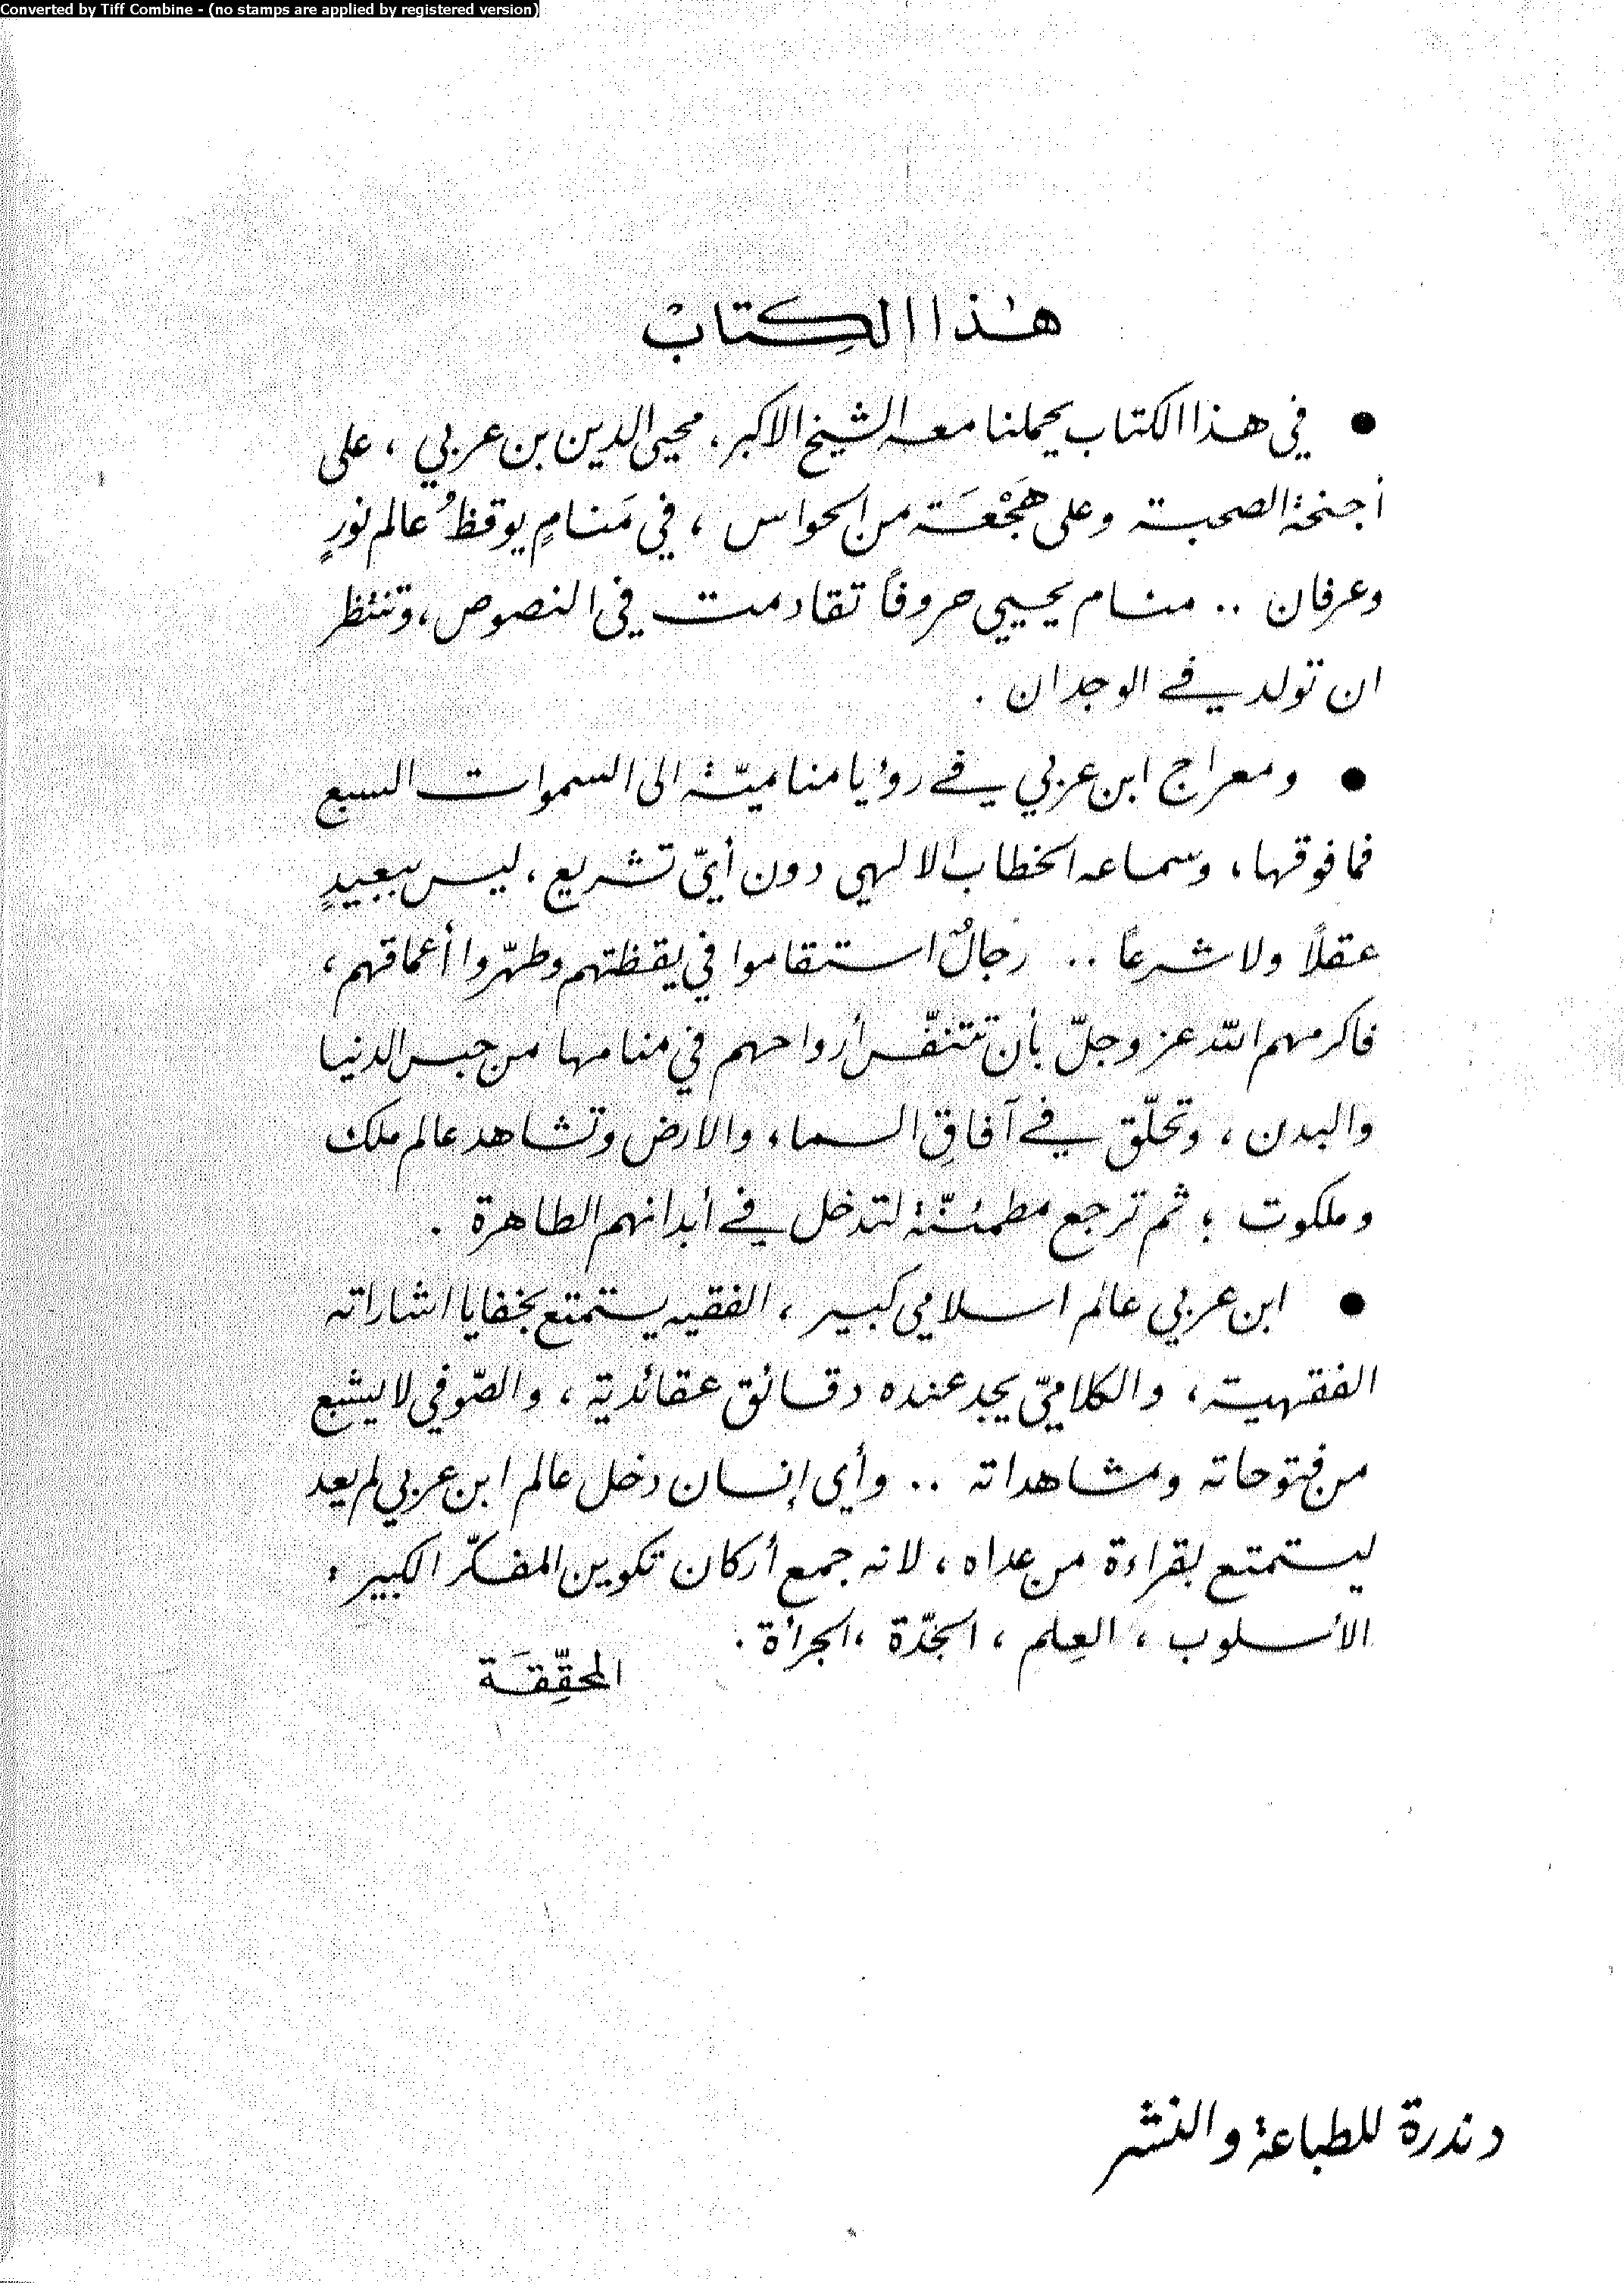 Converted by Tiff Combine - (no stamps are applied by registered version)
هٰذا الكِتابْ
● في هذا الكتاب يحملنا معه الشيخ الاكبر، محيي الدين بن عربي ، على
أجنحة الصحبة وعلى هَجْعَة من الحواس ، في مَنامٍ يوقظُ عالم نورٍ
وعرفان .. منام يحيي حروفاً تقادمت في النصوص، وتنتظر
ان تولد في الوجدان .
● ومعراج ابن عربي في رؤيا مناميّة الى السموات السبع
فما فوقها، وسماعه الخطاب الالهي دون أيّ تشريع، ليس ببعيدٍ
عقلاً ولا شرعاً .. رجالٌ استقاموا في يقظتهم وطهّروا أعماقهم،
فاكرمهم الله عز وجلّ بأن تتنفّس أرواحهم في منامها من حبس الدنيا
والبدن ، وتحلّق في آفاقِ السماء والارض وتشاهد عالم ملك
وملكوت ؛ ثم ترجع مطمئنّة لتدخل في أبدانهم الطاهرة .
● ابن عربي عالم اسلامي كبير ، الفقيه يستمتع بخفايا اشاراته
الفقهية، والكلاميّ يجد عنده دقائق عقائدية ، والصّوفي لا يشبع
من فتوحاته ومشاهداته .. وأي إنسان دخل عالم ابن عربي لم يعد
ليستمتع بقراءة من عداه ، لانه جمع أركان تكوين المفكّر الكبير :
الأسلوب ، العِلم ، الجدّة ، الجرأة .
المحقِّقَة
دندرة للطباعة والنشر